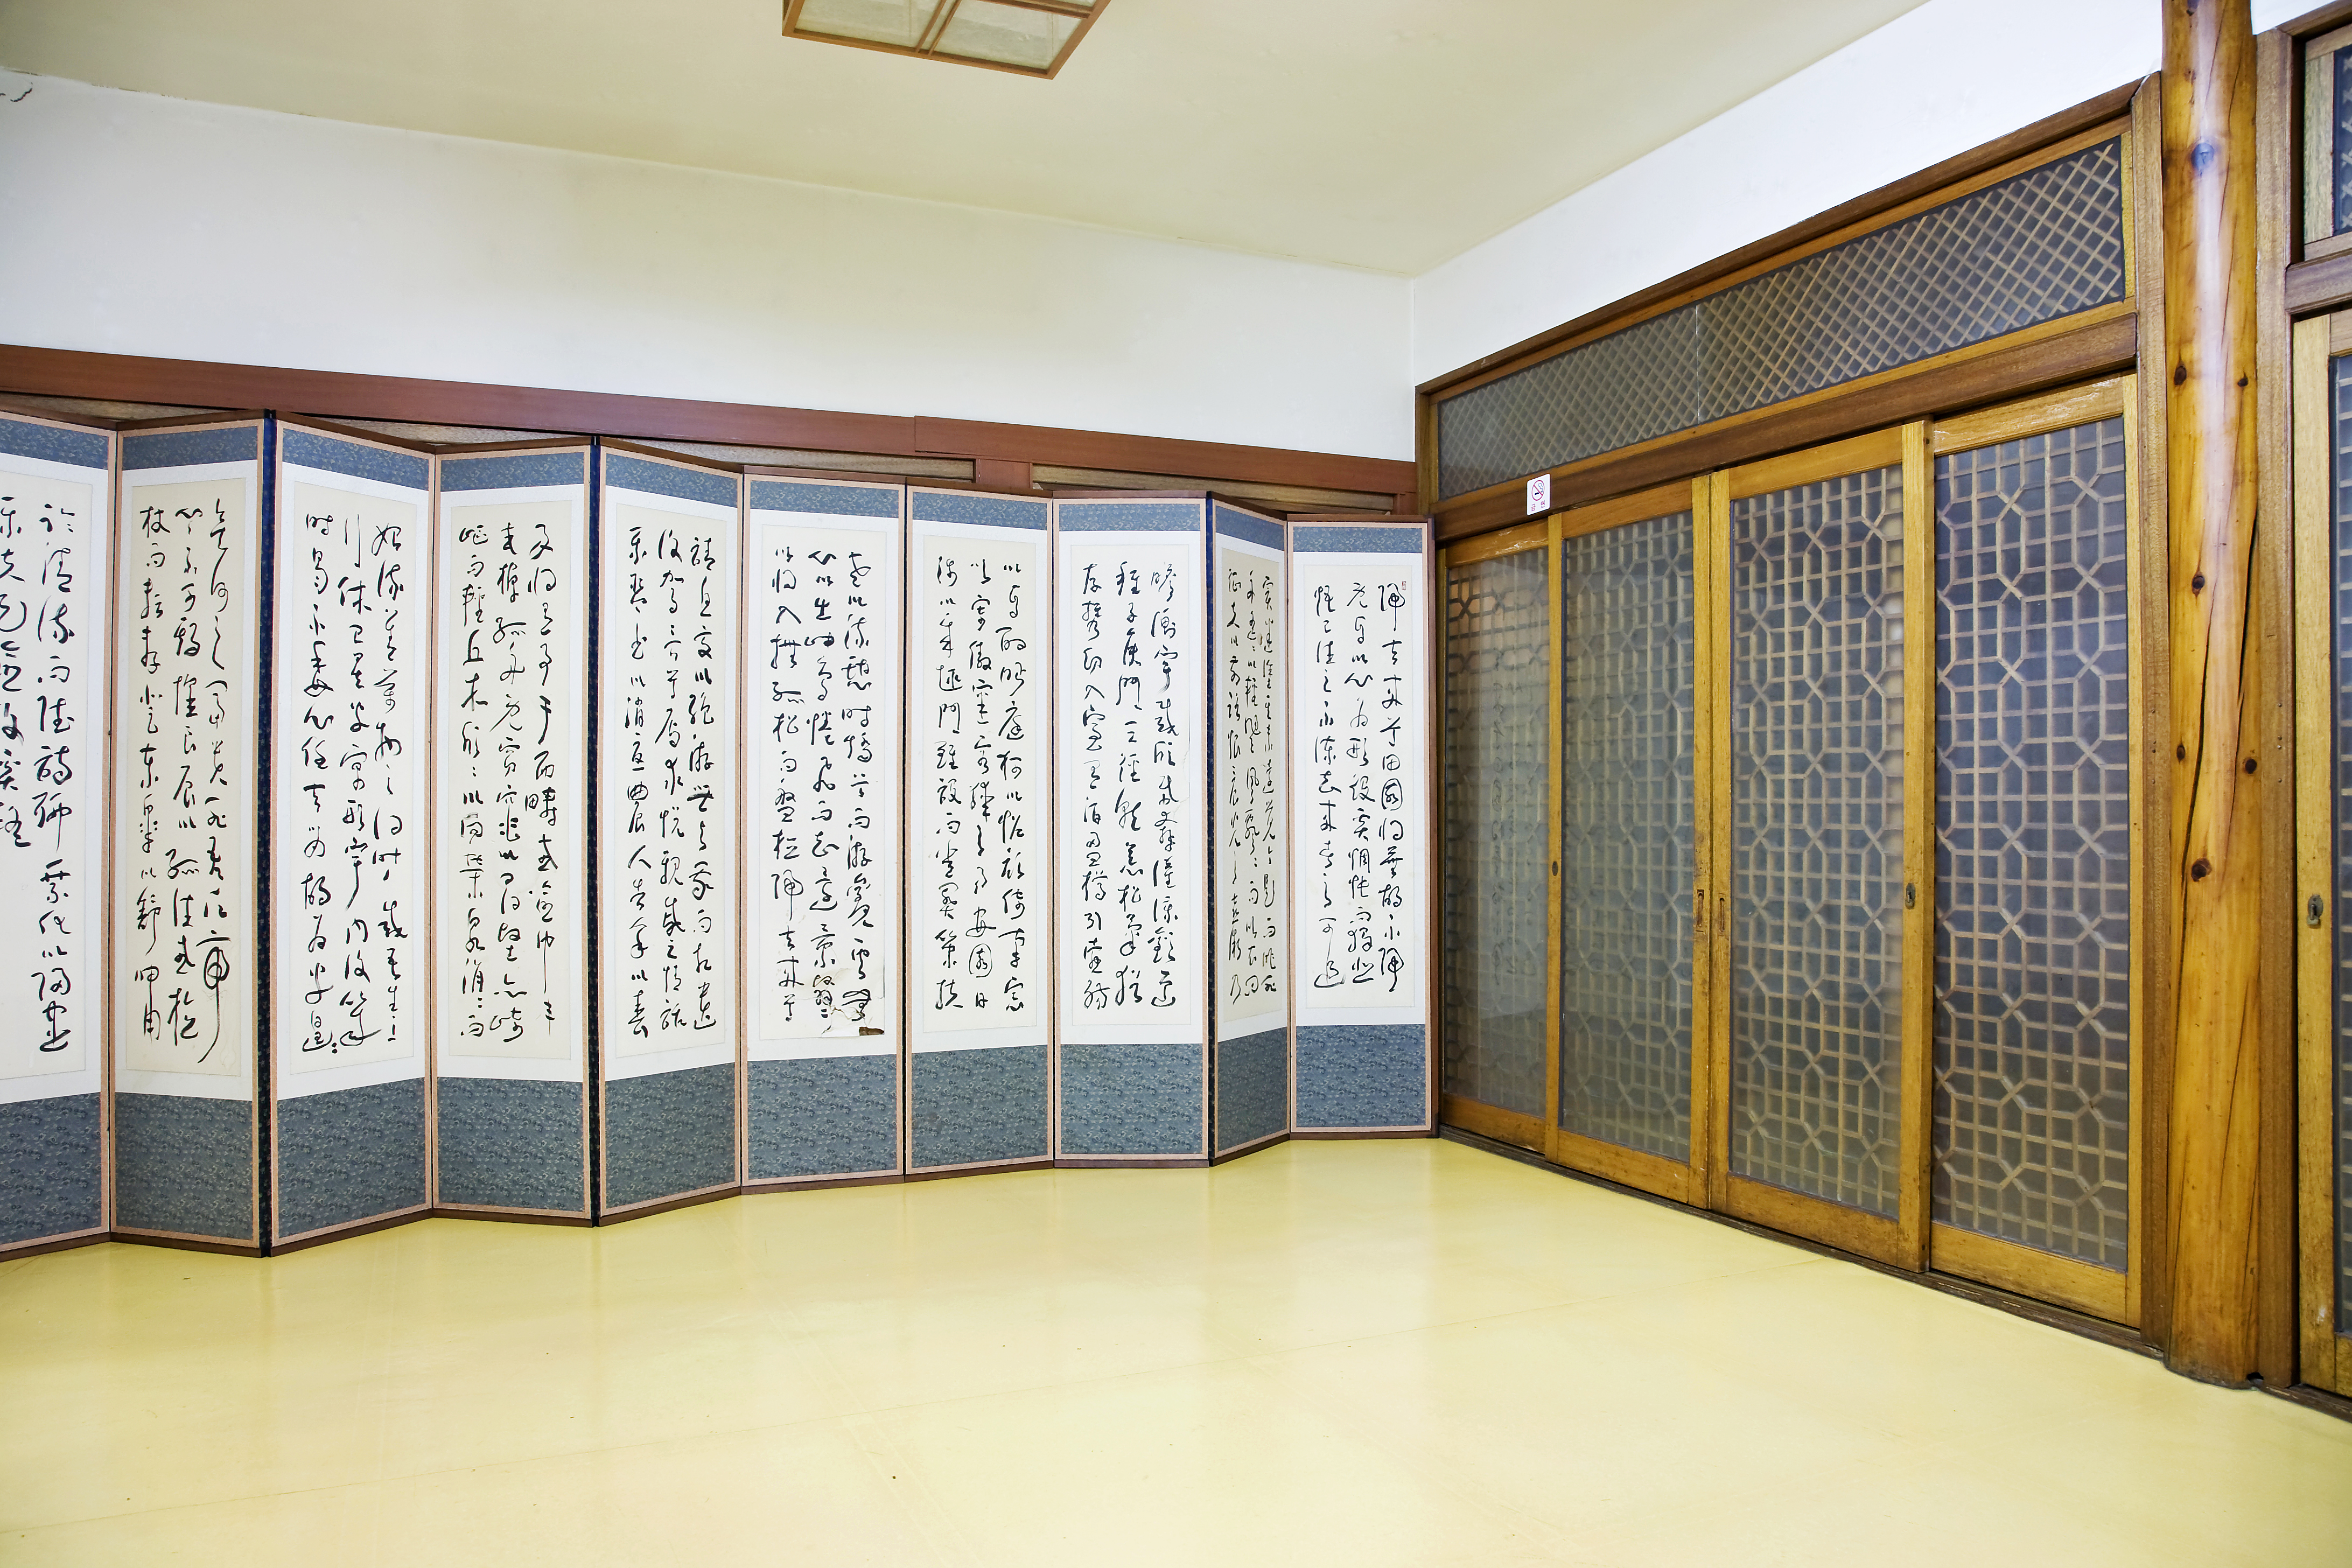 歸去來兮田園將蕪胡不歸
既自以心爲形役奚惆悵而獨悲
悟已往之不諫知來者之可追
實迷途其未遠覺今是而昨非
舟遙遙以輕颺風飄飄而吹衣問
征夫以前路恨晨光之熹微乃
瞻衡宇載欣載奔僮僕歡迎
稚子候門三徑就荒松菊猶
存携幼入室有酒盈樽引壺觴
以自酌眄庭柯以怡顔倚南窓
以寄傲審容膝之易安園日
涉以成趣門雖設而常關策扶
老以流憩時矯首而游觀雲無
心以出岫鳥倦飛而知還景翳翳
以將入撫孤松而盤桓歸去來兮
請息交以絶游世與我而相遺
復駕言兮焉求悅親戚之情話
樂琴書以消憂農人告余以春
及將有事于西疇或命巾車
或棹孤舟既窈窕以尋壑亦崎
嶇而經丘木欣欣以向榮泉涓涓而
始流羨萬物之得時感吾生之
行休已矣乎寓形宇內復幾
時曷不委心任去留胡爲乎遑遑
欲何之富貴非吾願帝
鄉不可期懷良辰以孤往或植
杖而耘耔登東皐以舒嘯臨
清流而賦詩聊乘化以歸盡
樂夫天命復奚疑
금연